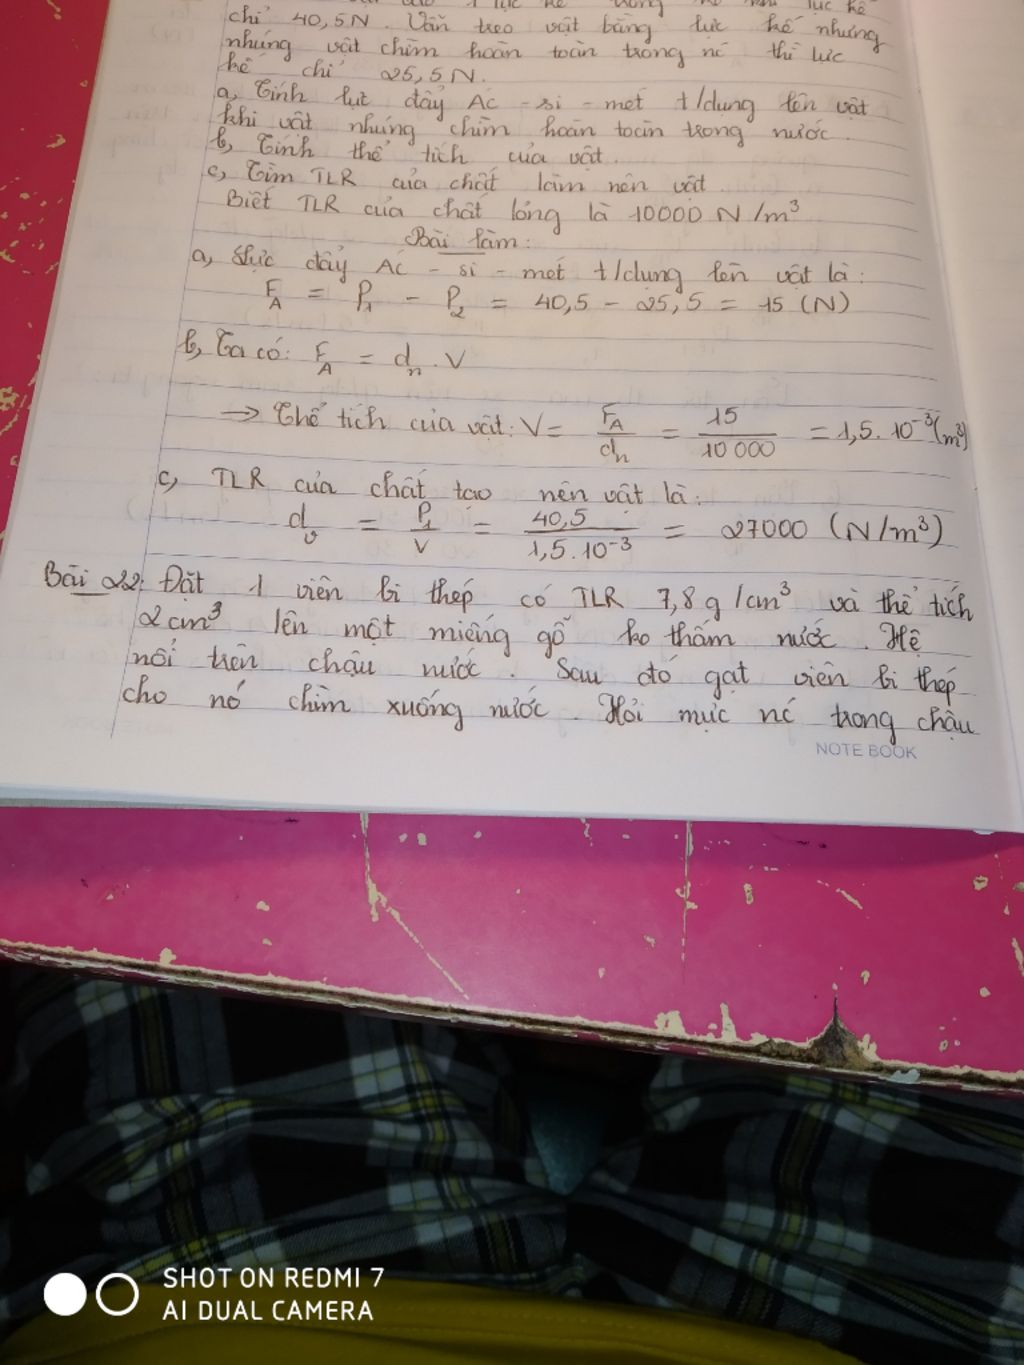 chỉ 40,5N. Vẫn treo vật bằng lực kế nhưng
nhúng vật chìm hoàn toàn trong nc thì lực
kế chỉ 25,5N.
a, Tính lực đẩy Ác - si - mét t/dụng lên vật
khi vật nhúng chìm hoàn toàn trong nước.
b, Tính thể tích của vật.
c, Tìm TLR của chất làm nên vật.
Biết TLR của chất lỏng là 10000 N/m³
Bài làm:
a, Lực đẩy Ác - si - mét t/dụng lên vật là:
F_A = P₁ - P₂ = 40,5 - 25,5 = 15 (N)
b, Ta có: F_A = d_n . V
→ Thể tích của vật: V = F_A/d_n = 15/10 000 = 1,5.10⁻³(m³)
c, TLR của chất tạo nên vật là:
d_v = P₁/V = 40,5/1,5.10⁻³ = 27000 (N/m³)
Bài 22: Đặt 1 viên bi thép có TLR 7,8g/cm³ và thể tích
2cm³ lên một miếng gỗ ko thấm nước. Hệ
nổi trên chậu nước. Sau đó gạt viên bi thép
cho nó chìm xuống nước. Hỏi mực nc trong chậu
NOTE BOOK
SHOT ON REDMI 7
AI DUAL CAMERA